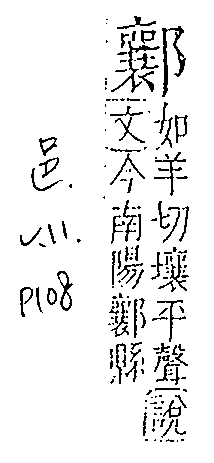 鄴
如羊切壤平聲說
文今南陽鄴縣
邑.
V.11.
P108